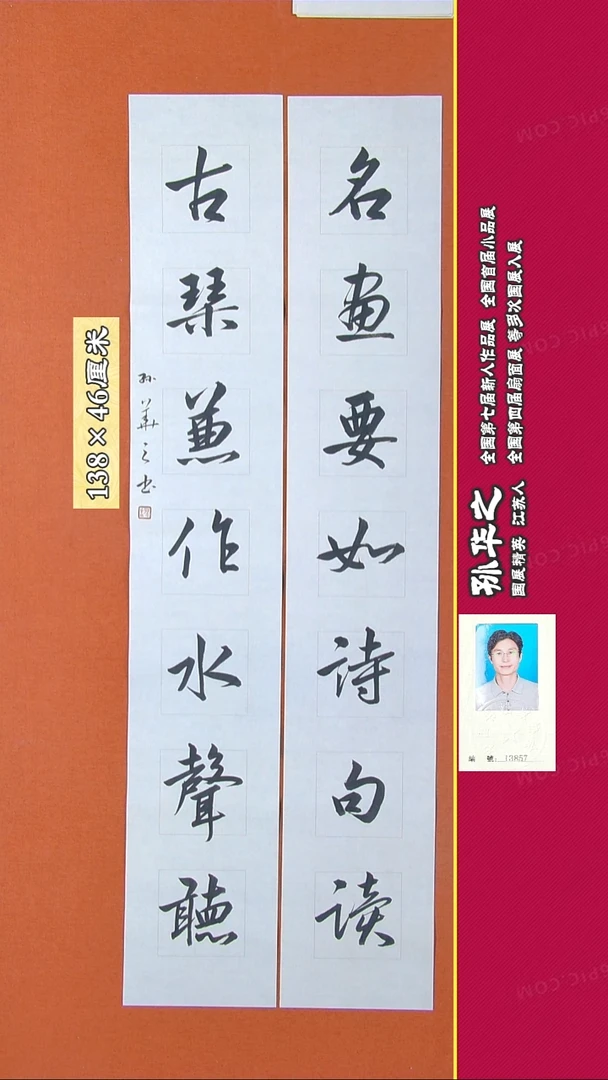 名畫要如詩句读
古琴兼作水聲聽
孙華之书
138×46厘米
孙华之
国展精英 江苏人
全国第七届新人作品展 全国首届小品展
全国第四届扇面展 等多次国展入展
编 號: 13857